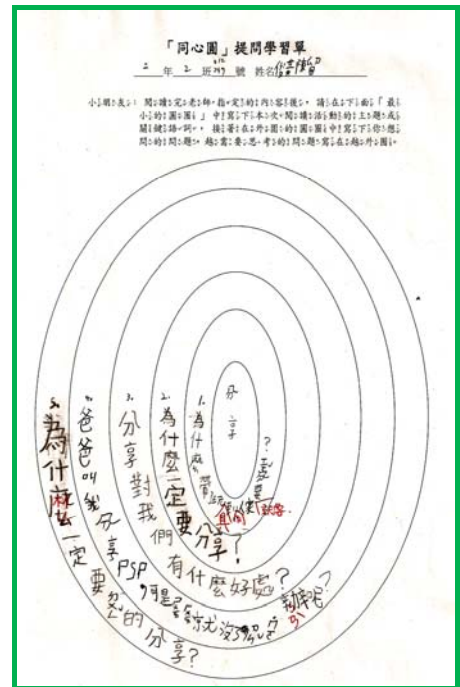 「同心圓」提問學習單
二 年 2 班 號 姓名
小朋友：閱讀完老師指定的內容後，請在下面「最
小的圓圈」中寫下本次閱讀活動的主題或
關鍵語詞，接著在外圈的圓圈中寫下你想
問的問題，越需要思考的問題寫在越外圈。
分享
1. 為什麼
2. 為什麼一定要分享？
3. 分享對我們有什麼好處？
4. 爸爸叫我分享PSP，可是
5. 為什麼一定要 的分享？